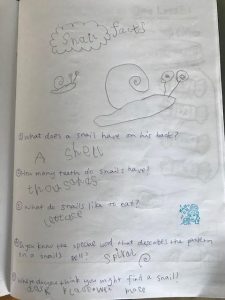 Snail facts
① What does a snail have on his back?
A shell
② How many teeth do snails have?
thousands
③ What do snails like to eat?
lettuce
④ Do you know the special word that describes the pattern
on a snail's shell? Spiral
⑤ Where do you think you might find a snail?